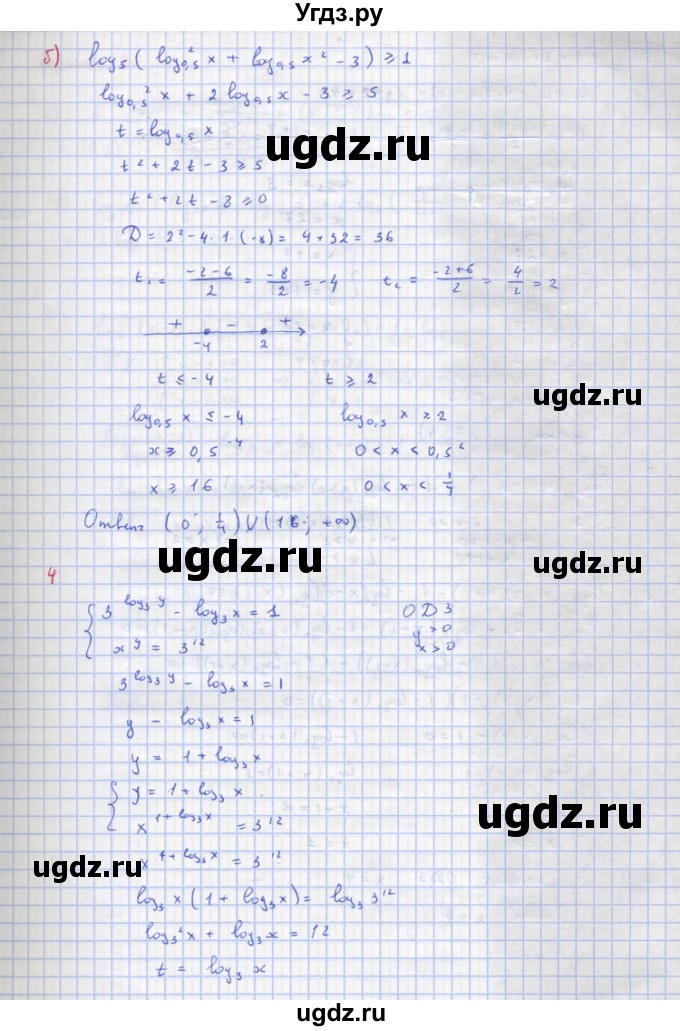 Угдз.ру
б) log₅( log²₀,₅ x + log₀,₅ x² - 3 ) ≥ 1
log₀,₅² x + 2 log₀,₅ x - 3 ≥ 5
ugdz.ru
t = log₀,₅ x
t² + 2t - 3 ≥ 5
t² + 2t - 8 ≥ 0
D = 2² - 4 · 1 · (-8) = 4 + 32 = 36
t₁ = (-2-6)/2 = -8/2 = -4 t₂ = (-2+6)/2 = 4/2 = 2
ugdz.ru
+ - +
-4 2
t ≤ -4 t ≥ 2
ugdz.ru
log₀,₅ x ≤ -4 log₀,₅ x ≥ 2
x ≥ 0,5⁻⁴ 0 < x < 0,5²
x ≥ 16 0 < x < 1/4
Ответ: (0; 1/4) ∪ (16; +∞)
ugdz.ru
ugdz.ru
4
{ 3^(log₃ y) - log₃ x = 1 ОДЗ
y > 0
x^y = 3¹² x > 0
3^(log₃ y) - log₃ x = 1
y - log₃ x = 1
y = 1 + log₃ x
{ y = 1 + log₃ x
x^(1 + log₃ x) = 3¹²
ugdz.ru
x^(1 + log₃ x) = 3¹²
ugdz.ru
log₃ x (1 + log₃ x) = log₃ 3¹²
log₃² x + log₃ x = 12
t = log₃ x
ugdz.ru
ugdz.ru